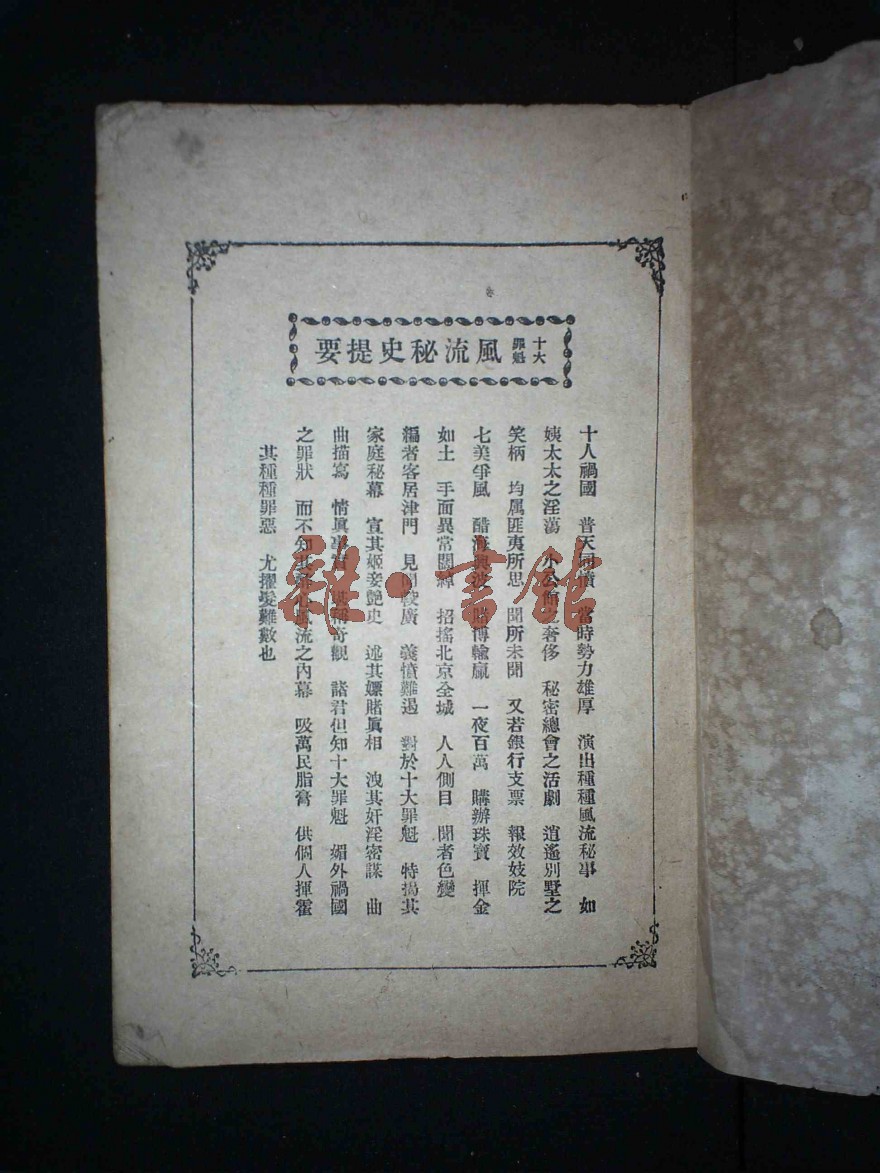 十大罪魁 風流秘史提要
十人禍國 普天同憤 當時勢力雄厚 演出種種風流秘事 如
姨太太之淫蕩 小公館之奢侈 秘密總會之活劇 逍遙別墅之
笑柄 均属匪夷所思 聞所未聞 又若銀行支票 報效妓院
七美爭風 醋海興波 賭博輸贏 一夜百萬 購辦珠寶 揮金
如土 手面異常闊綽 招搖北京全城 人人側目 聞者色變
編者客居津門 見聞較廣 義憤難遏 對於十大罪魁 特揭其
家庭秘幕 宣其姬妾艷史 述其嫖賭眞相 洩其奸淫密謀 曲
曲描寫 情眞事實 稱奇觀 諸君但知十大罪魁 媚外禍國
之罪狀 而不知其 心風流之內幕 吸萬民脂膏 供個人揮霍
其種種罪惡 尤擢髮難數也
雜·書館